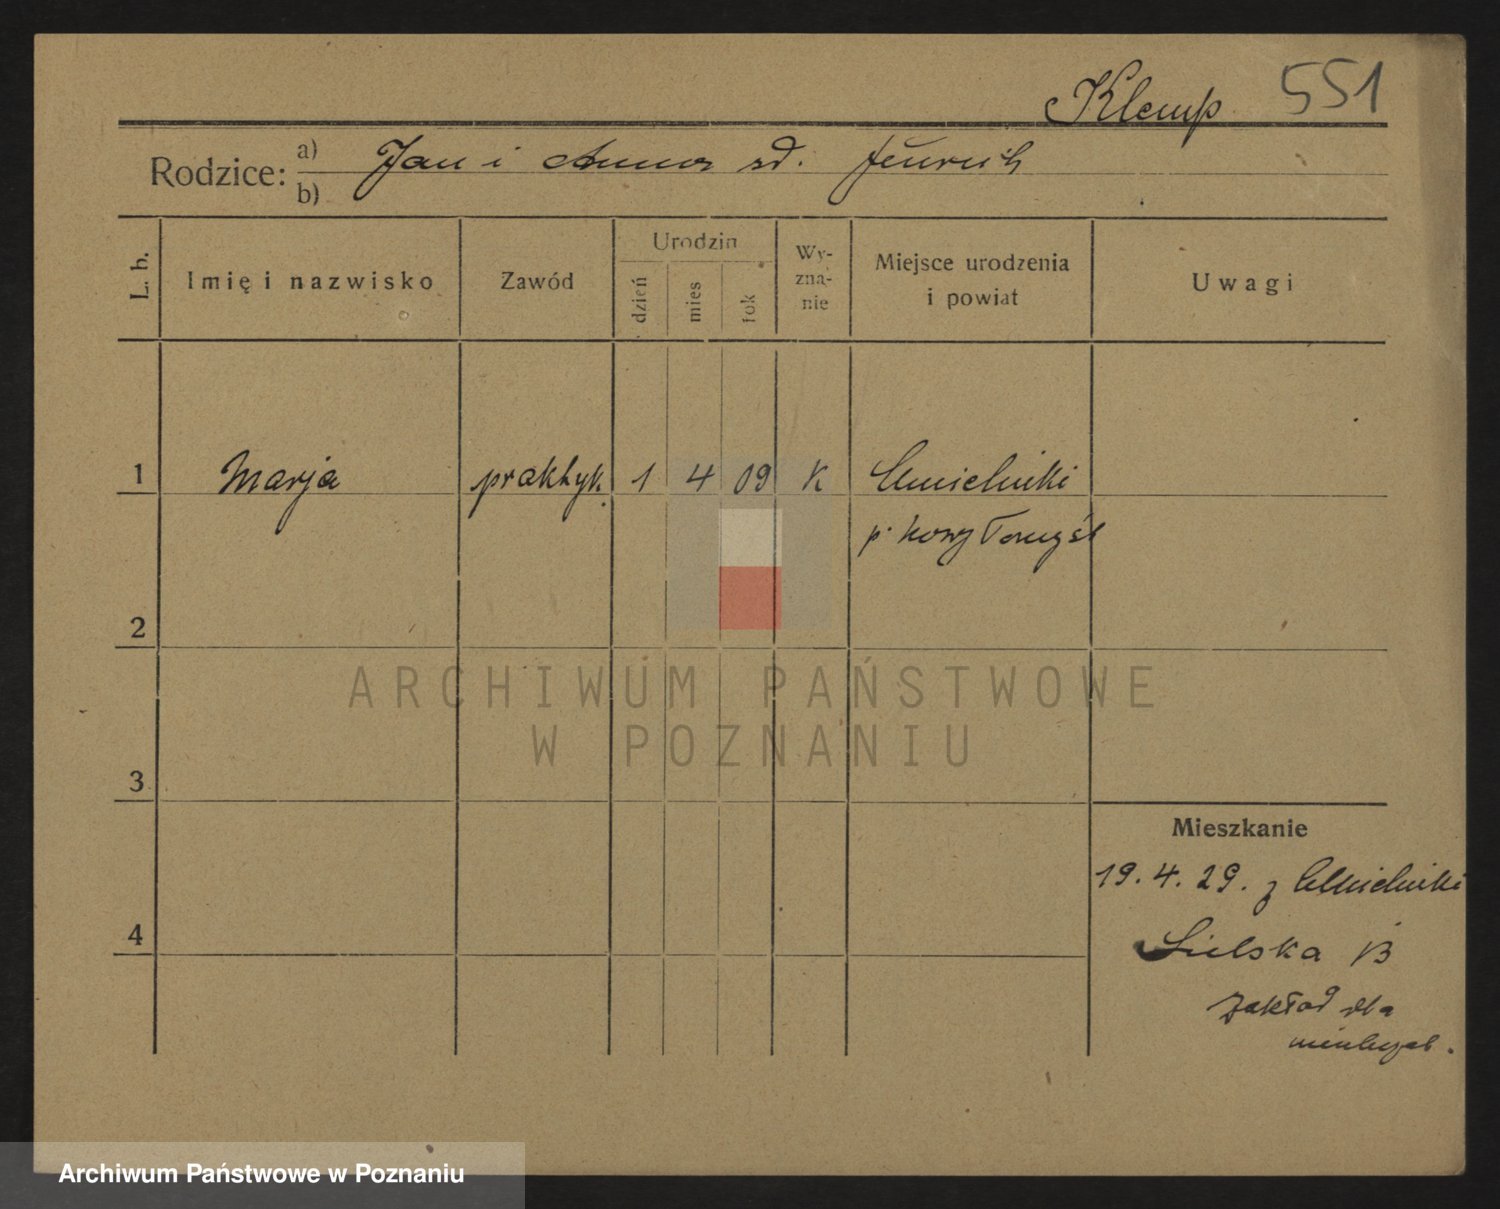 Klemp 551
Rodzice: a) Jan i Anna zd.
b)
L. b. Imię i nazwisko Zawód Urodzin dzień mies rok Wy-zna-nie Miejsce urodzenia i powiat Uwagi
1 Marja praktyk. 1 4 09 K Chmielniki
p. Nowy Tomyśl
2
ARCHIWUM PAŃSTWOWE
W POZNANIU
3
Mieszkanie
19.4.29. z Chmielniki
4
zakład dla
Archiwum Państwowe w Poznaniu